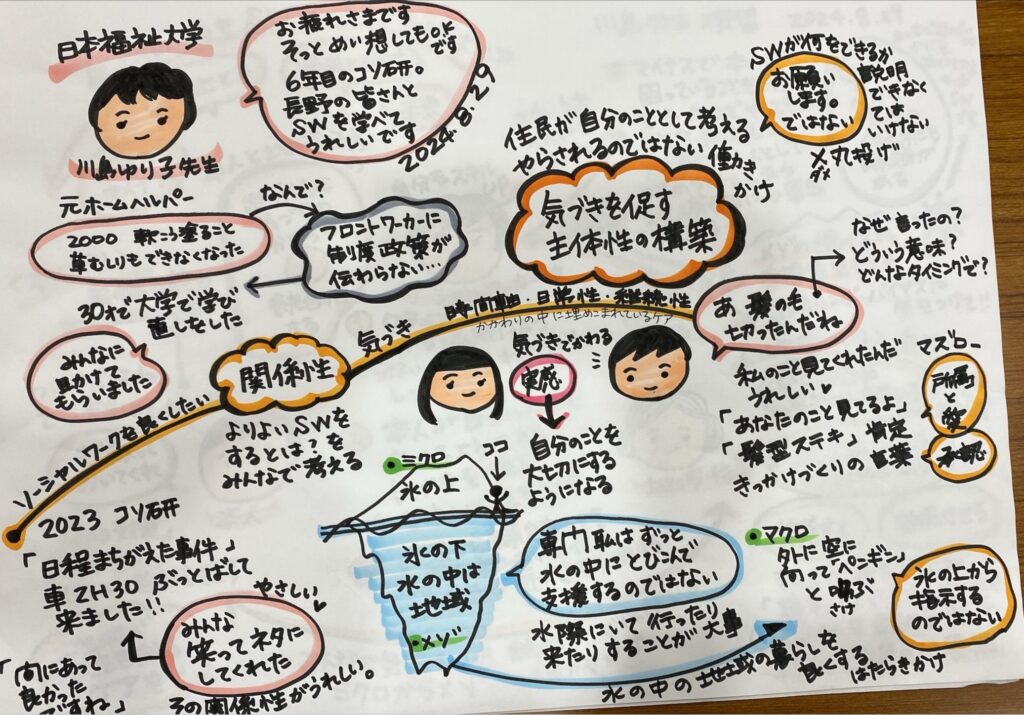 日本福祉大学
川島ゆり子先生
お疲れさまです
そっとめい想してもOKです
6年目のコソ研。
長野の皆さんと
SWを学べて
うれしいです
2024.8.29
元ホームヘルパー
2000 軟こう塗ること
草むしりもできなくなった
なんで?
フロントワーカーに
制度政策が
伝わらない…
30才で大学で学び
直しをした
みんなに
見かけて
もらいました
ソーシャルワークを良くしたい
関係性
気づき
時間軸・日常性・継続性
かかわりの中に埋めこまれているケア
よりよいSWを
するとは?を
みんなで考える
住民が自分のこととして考える
やらされるのではない 働きかけ
気づきを促す
主体性の構築
SWが何をできるか
説明
できなく
ては
いけない
お願い
します。
ではない
×丸投げ
ダメ
あ 髪の毛
切ったんだね
なぜ言ったの?
どういう意味?
どんなタイミングで?
気づきでかわる
実感
自分のことを
大切にする
ようになる
私のこと見てくれたんだ
うれしい
「あなたのこと見てるよ」
「髪型ステキ」肯定
きっかけづくりの言葉
マズロー
所属
と
愛
承認
2023 コソ研
「日程まちがえた事件」
車2H30 ぶっとばして
来ました!!
やさしい
みんな
笑ってネタに
してくれた
「向にあって
良かった
ですね」
その関係性がうれしい。
ミクロ
氷の上
ココ
氷の下
水の中は
地域
メゾ
専門職はずっと
水の中にとびこんで
支援するのではない
水際にいて 行ったり
来たりすることが大事
マクロ
外に空に
向って「ペンギン」
と叫ぶ
さけ
氷の上から
指示する
のではない
水の中の地域の暮らしを
良くする
はたらきかけ